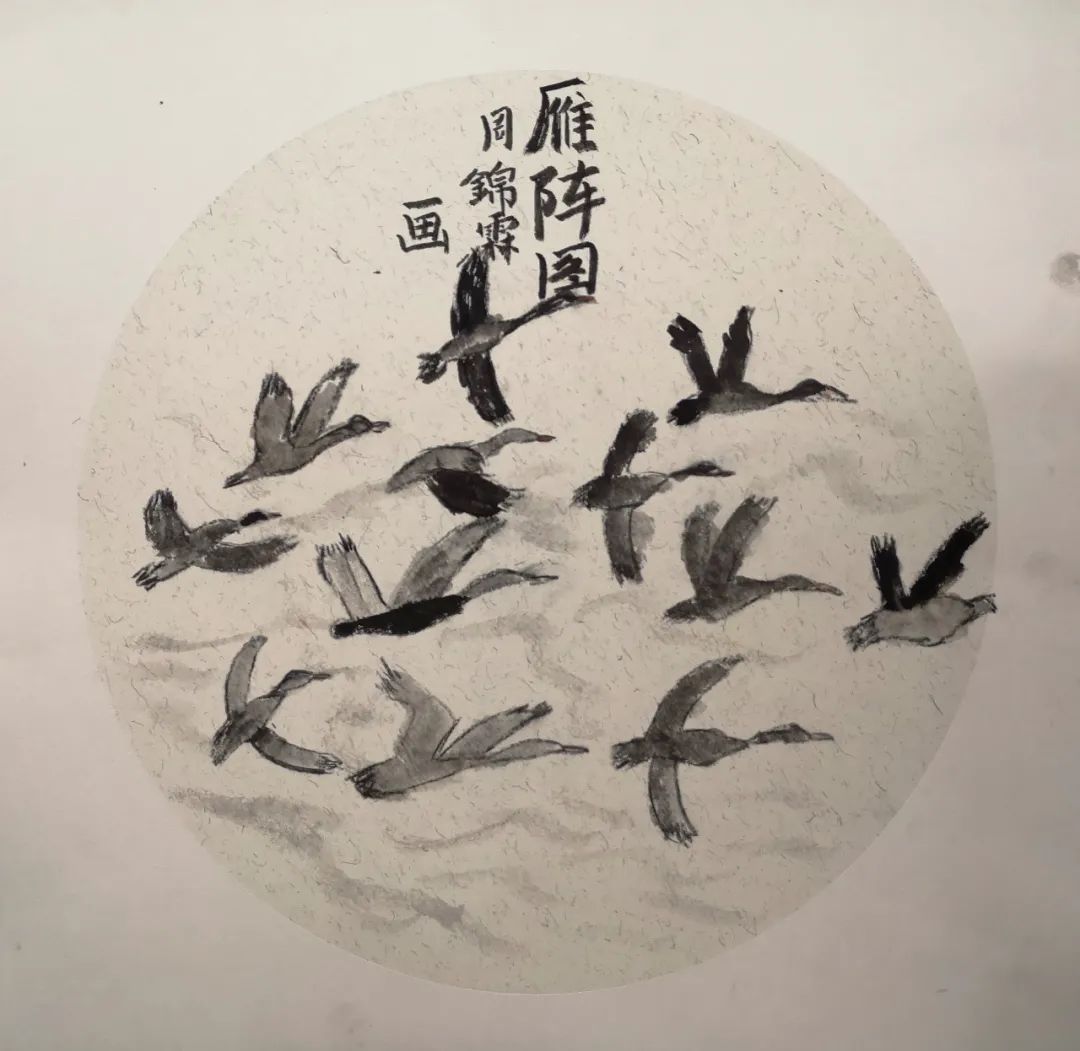 雁阵图
周錦霖
画